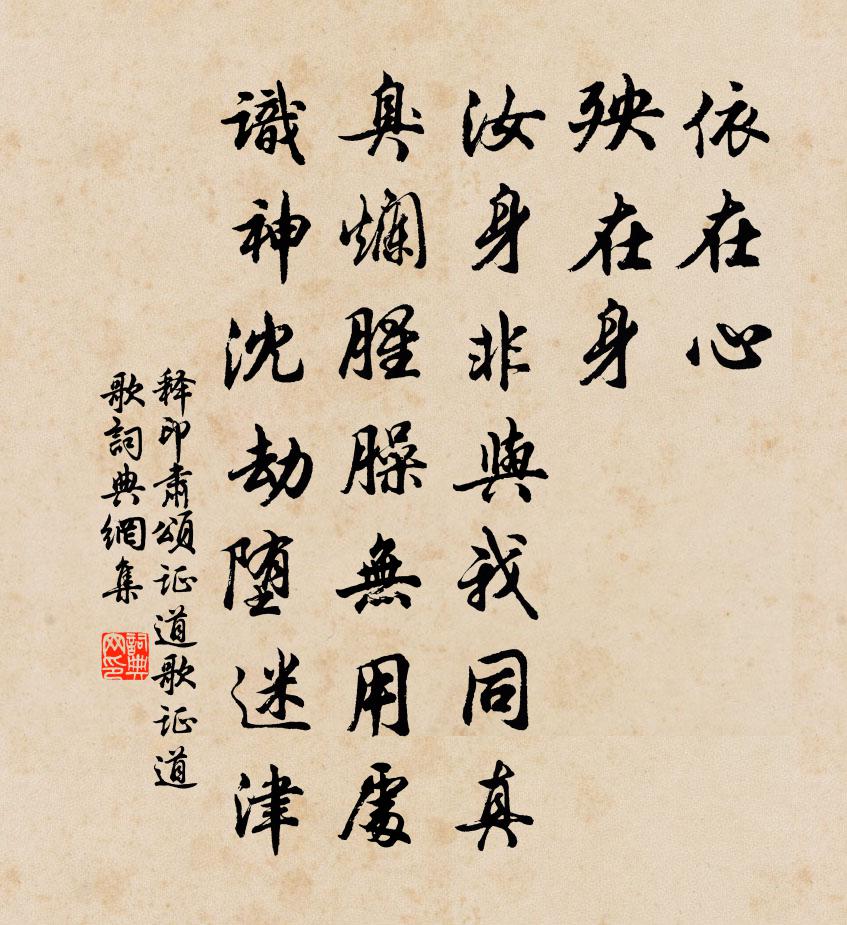 依在心
殃在身
汝身非與我同真
臭爛腥臊無用處
識神沈劫堕迷津
释印肅頌证道歌证道
歌詞典網集
詞典
网印